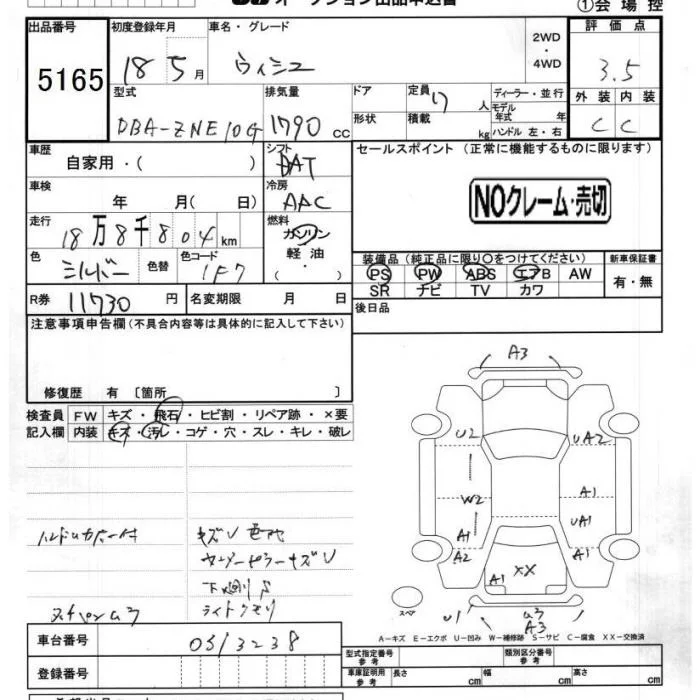 オークション出品申込書
①会場控
出品番号 初度登録年月 車名・グレード 2WD・4WD 評価点
5165 18 5月 ウィシュ 3.5
型式 排気量 ドア 定員 7人 ディーラー・並行 外装 内装
DBA-ZNE10G 1790cc 形状 積載 kg モデル年式 年 ハンドル 左・右 C C
車歴 自家用・( ) シフト DAT セールスポイント (正常に機能するものに限ります)
車検 年 月( 日) 冷房 AAC NOクレーム・売切
走行 18万8千804km 燃料 ガソリン 軽油・( )
色 シルバー 色替 色コード 1F7
装備品(純正品に限り○をつけてください) 新車保証書
PS PW ABS エアB AW 有・無
SR ナビ TV カワ
R券 11730円 名変期限 月 日
後日品
注意事項申告欄(不具合内容等は具体的に記入して下さい)
修復歴 有 〔箇所 〕
検査員 FW キズ・飛石・ヒビ割・リペア跡・×要
記入欄 内装 キズ・汚レ・コゲ・穴・スレ・キレ・破レ
A3
U2 UA2
W2 A1
UA1
A1 A1
A2
XX
A1
スペア U1 A3
キズU
下廻りS
ライトクモリ
A−キズ E−エクボ U−凹み W−補修跡 S−サビ C−腐食 XX−交換済
車台番号 0313238
登録番号
型式指定番号 参考 類別区分番号 参考
車庫証明用 参考 長さ cm 幅 cm 高さ cm